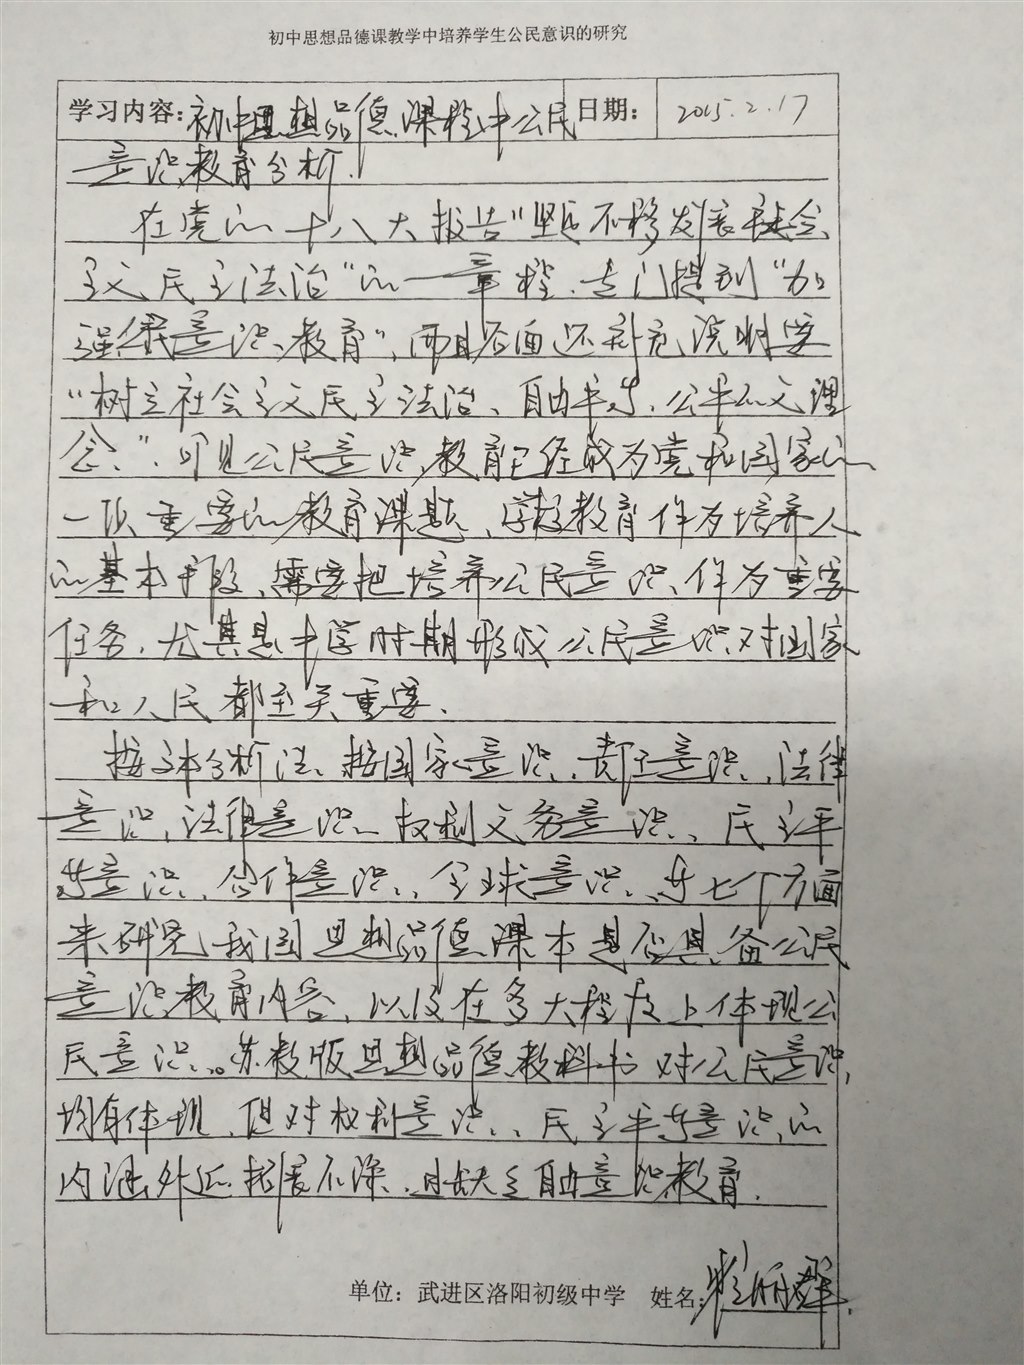 初中思想品德课教学中培养学生公民意识的研究
学习内容：初中思想品德课程中公民 日期： 2015.2.17
意识教育分析.
在党的十八大报告"坚定不移发展社会
主义民主法治"的一章程.专门提到"加
强公民意识教育",而且后面还补充说明要
"树立社会主义民主法治、自由平等、公平正义理
念."．可见公民意识教育已经成为党和国家的
一项重要的教育课题、学校教育作为培养人
的基本手段、需要把培养公民意识、作为重要
任务.尤其是中学时期形成公民意识对国家
和人民都至关重要.
按文本分析法、按国家意识、责任意识、法律
意识,法律意识、权利义务意识、民主平
等意识、合作意识、全球意识、等七个方面
来研究我国思想品德课本是否具备公民
意识教育内容、以及在多大程度上体现公
民意识。苏教版思想品德教科书对公民意识,
均有体现、但对权利意识、民主平等意识的
内涵外延拓展不深、且缺乏自由意识教育.
单位：武进区洛阳初级中学 姓名：